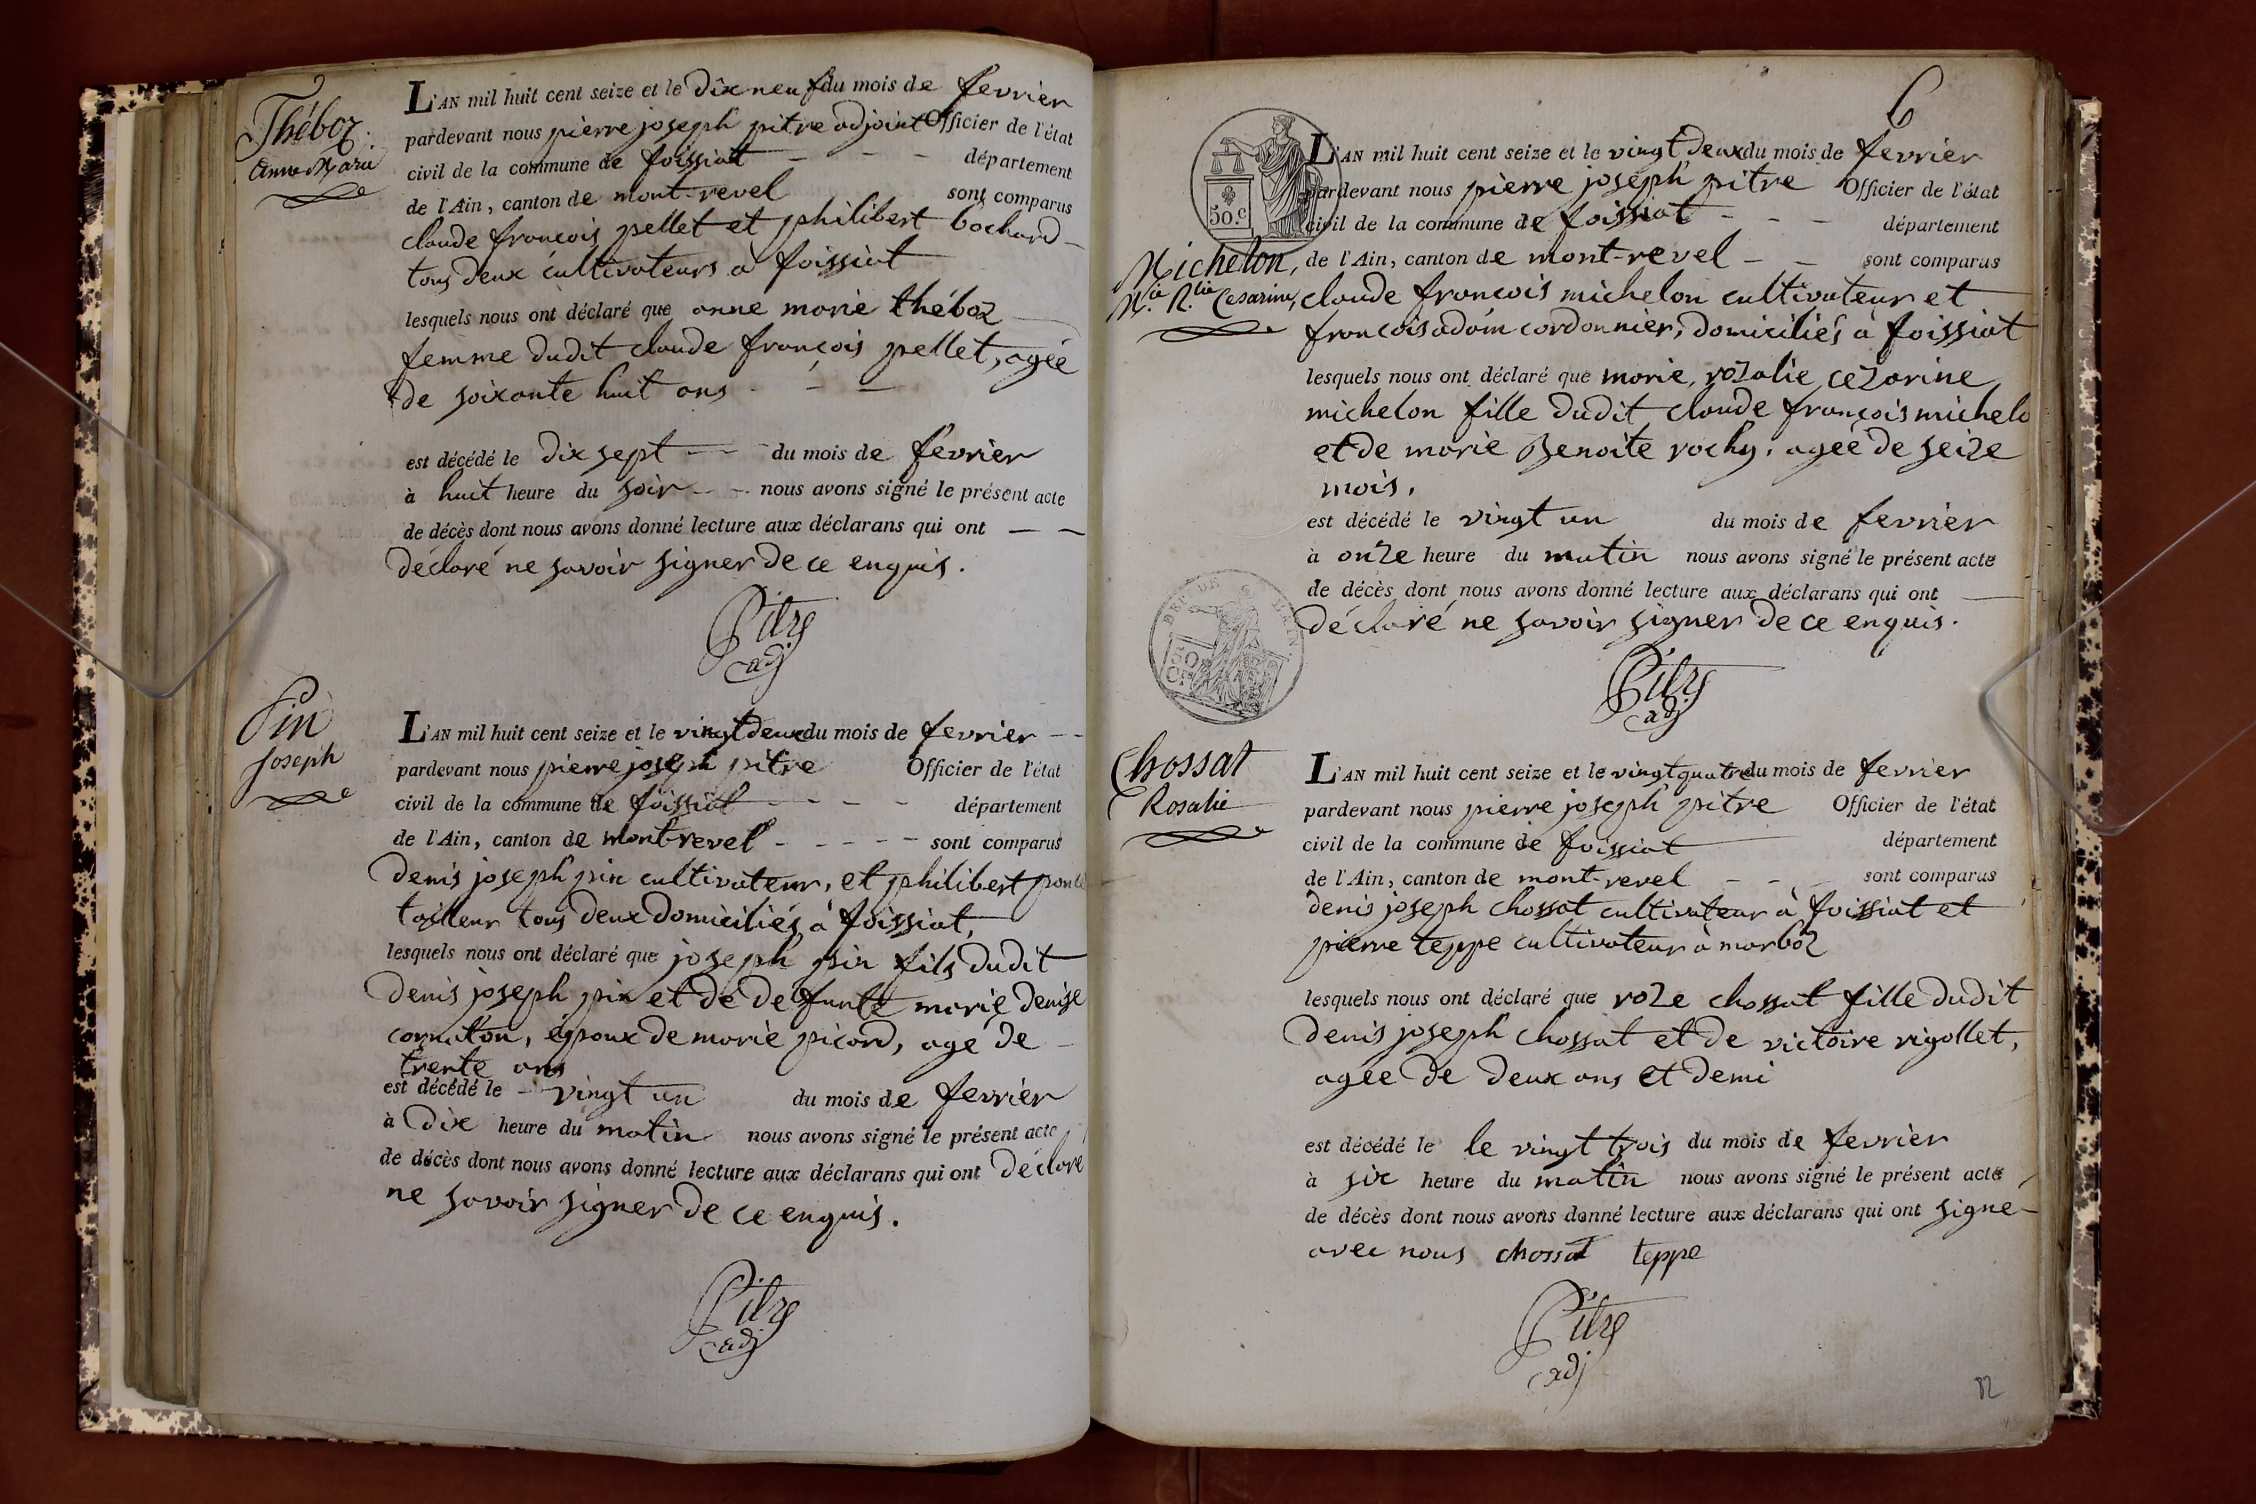 Théboz
anne Marie
L'AN mil huit cent seize et le dix neuf du mois de fevrier
pardevant nous pierre joseph pitre adjoint Officier de l'état
civil de la commune de foissiat - - - département
de l'Ain, canton de mont-revel sont comparus
claude françois pellet et philibert bochard
tous deux cultivateurs à foissiat
lesquels nous ont déclaré que anne marie théboz
femme dudit claude françois pellet, agée
de soixante huit ans - - -
est décédé le dix sept du mois de fevrier
à huit heure du soir nous avons signé le présent acte
de décès dont nous avons donné lecture aux déclarans qui ont
déclaré ne savoir signer de ce enquis.
Pitre
adj
Pin
Joseph
L'AN mil huit cent seize et le vingt deux du mois de fevrier
pardevant nous pierre joseph pitre Officier de l'état
civil de la commune de foissiat - - - département
de l'Ain, canton de mont-revel - - - - sont comparus
denis joseph pin cultivateur, et philibert
tailleur tous deux domiciliés à foissiat,
lesquels nous ont déclaré que joseph pin fils dudit
denis joseph pin et de defunte marie denise
cornaton, époux de marie picard, agé de
trente ans
est décédé le vingt un du mois de fevrier
à dix heure du matin nous avons signé le présent acte
de décès dont nous avons donné lecture aux déclarans qui ont déclaré
ne savoir signer de ce enquis.
Pitre
adj
6
50.c
L'AN mil huit cent seize et le vingt deux du mois de fevrier
pardevant nous pierre joseph pitre Officier de l'état
civil de la commune de foissiat - - - département
Michelon, de l'Ain, canton de mont-revel - - sont comparus
M.ie R.lie Cesarine, claude françois michelon cultivateur et
françois adam cordonnier, domiciliés à foissiat
lesquels nous ont déclaré que marie, rozalie, cezarine
michelon fille dudit claude françois michelo
et de marie Benoite rochy, agée de seize
mois,
est décédé le vingt un du mois de fevrier
à onze heure du matin nous avons signé le présent acte
de décès dont nous avons donné lecture aux déclarans qui ont
déclaré ne savoir signer de ce enquis.
Pitre
adj
Chossat
Rosalie
L'AN mil huit cent seize et le vingt quatre du mois de fevrier
pardevant nous pierre joseph pitre Officier de l'état
civil de la commune de foissiat département
de l'Ain, canton de mont-revel - - - sont comparus
denis joseph chossat cultivateur à foissiat et
pierre teppe cultivateur à marboz
lesquels nous ont déclaré que roze chossat fille dudit
denis joseph chossat et de victoire rigollet,
agée de deux ans et demi
est décédé le le vingt trois du mois de fevrier
à six heure du matin nous avons signé le présent acte
de décès dont nous avons donné lecture aux déclarans qui ont signé
avec nous chossat teppe
Pitre
adj